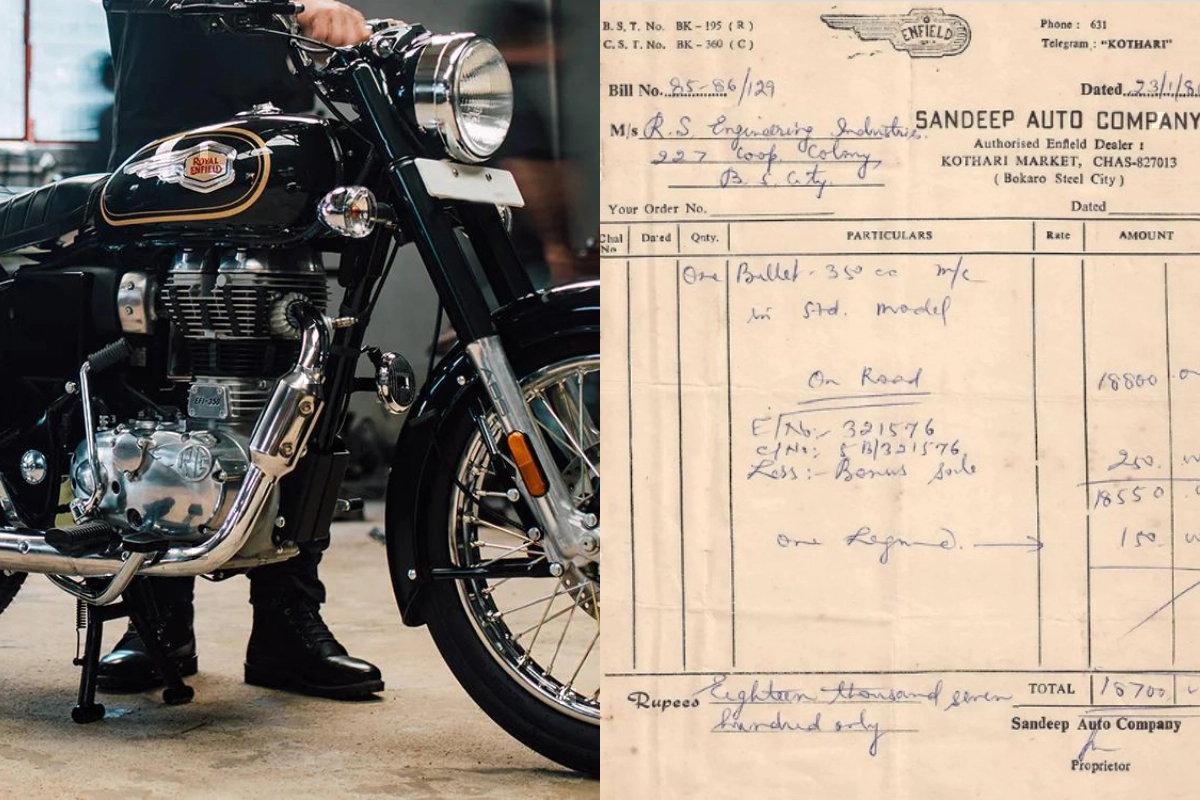 ROYAL
ENFIELD
EFI-350
B.S.T. No. BK-195 (R)
C.S.T. No. BK-360 (C)
ENFIELD
Phone: 631
Telegram: "KOTHARI"
Bill No. 85-86/129
Dated 23/1/8
M/s R.S. Engineering Industries.
SANDEEP AUTO COMPANY
227 Coop. Colony
Authorised Enfield Dealer:
KOTHARI MARKET, CHAS-827013
B.S. City
(Bokaro Steel City)
Your Order No.
Dated
Chal No
Dated
Qnty.
PARTICULARS
Rate
AMOUNT
One Bullet - 350 cc m/c
in Std. model
On Road 18800
E/No:- 321576
C/No:- 5B/321576
Less:- Bonus 250
18550
One 150
Rupees Eighteen thousand seven
TOTAL 18700
hundred only
Sandeep Auto Company
Proprietor